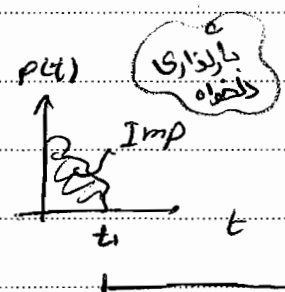 بارگذاری
دلخواه
P(t)
Imp
t₁
t